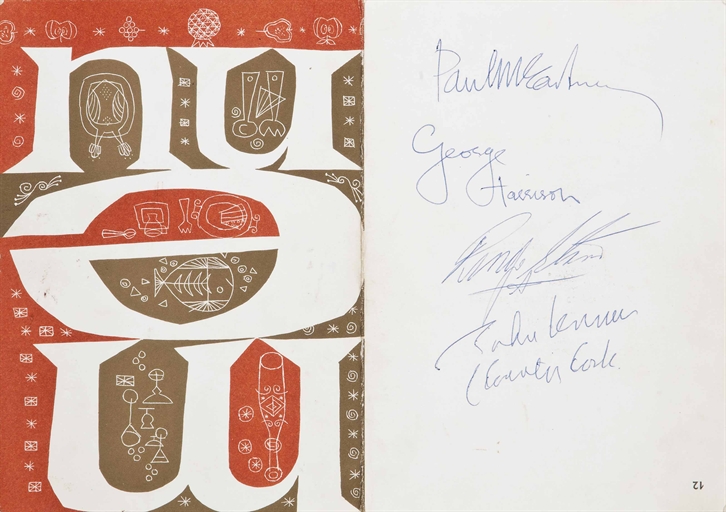 m
e
nu
Paul McCartney
George
Harrison
Ringo Starr
John Lennon
(County Cork.
12